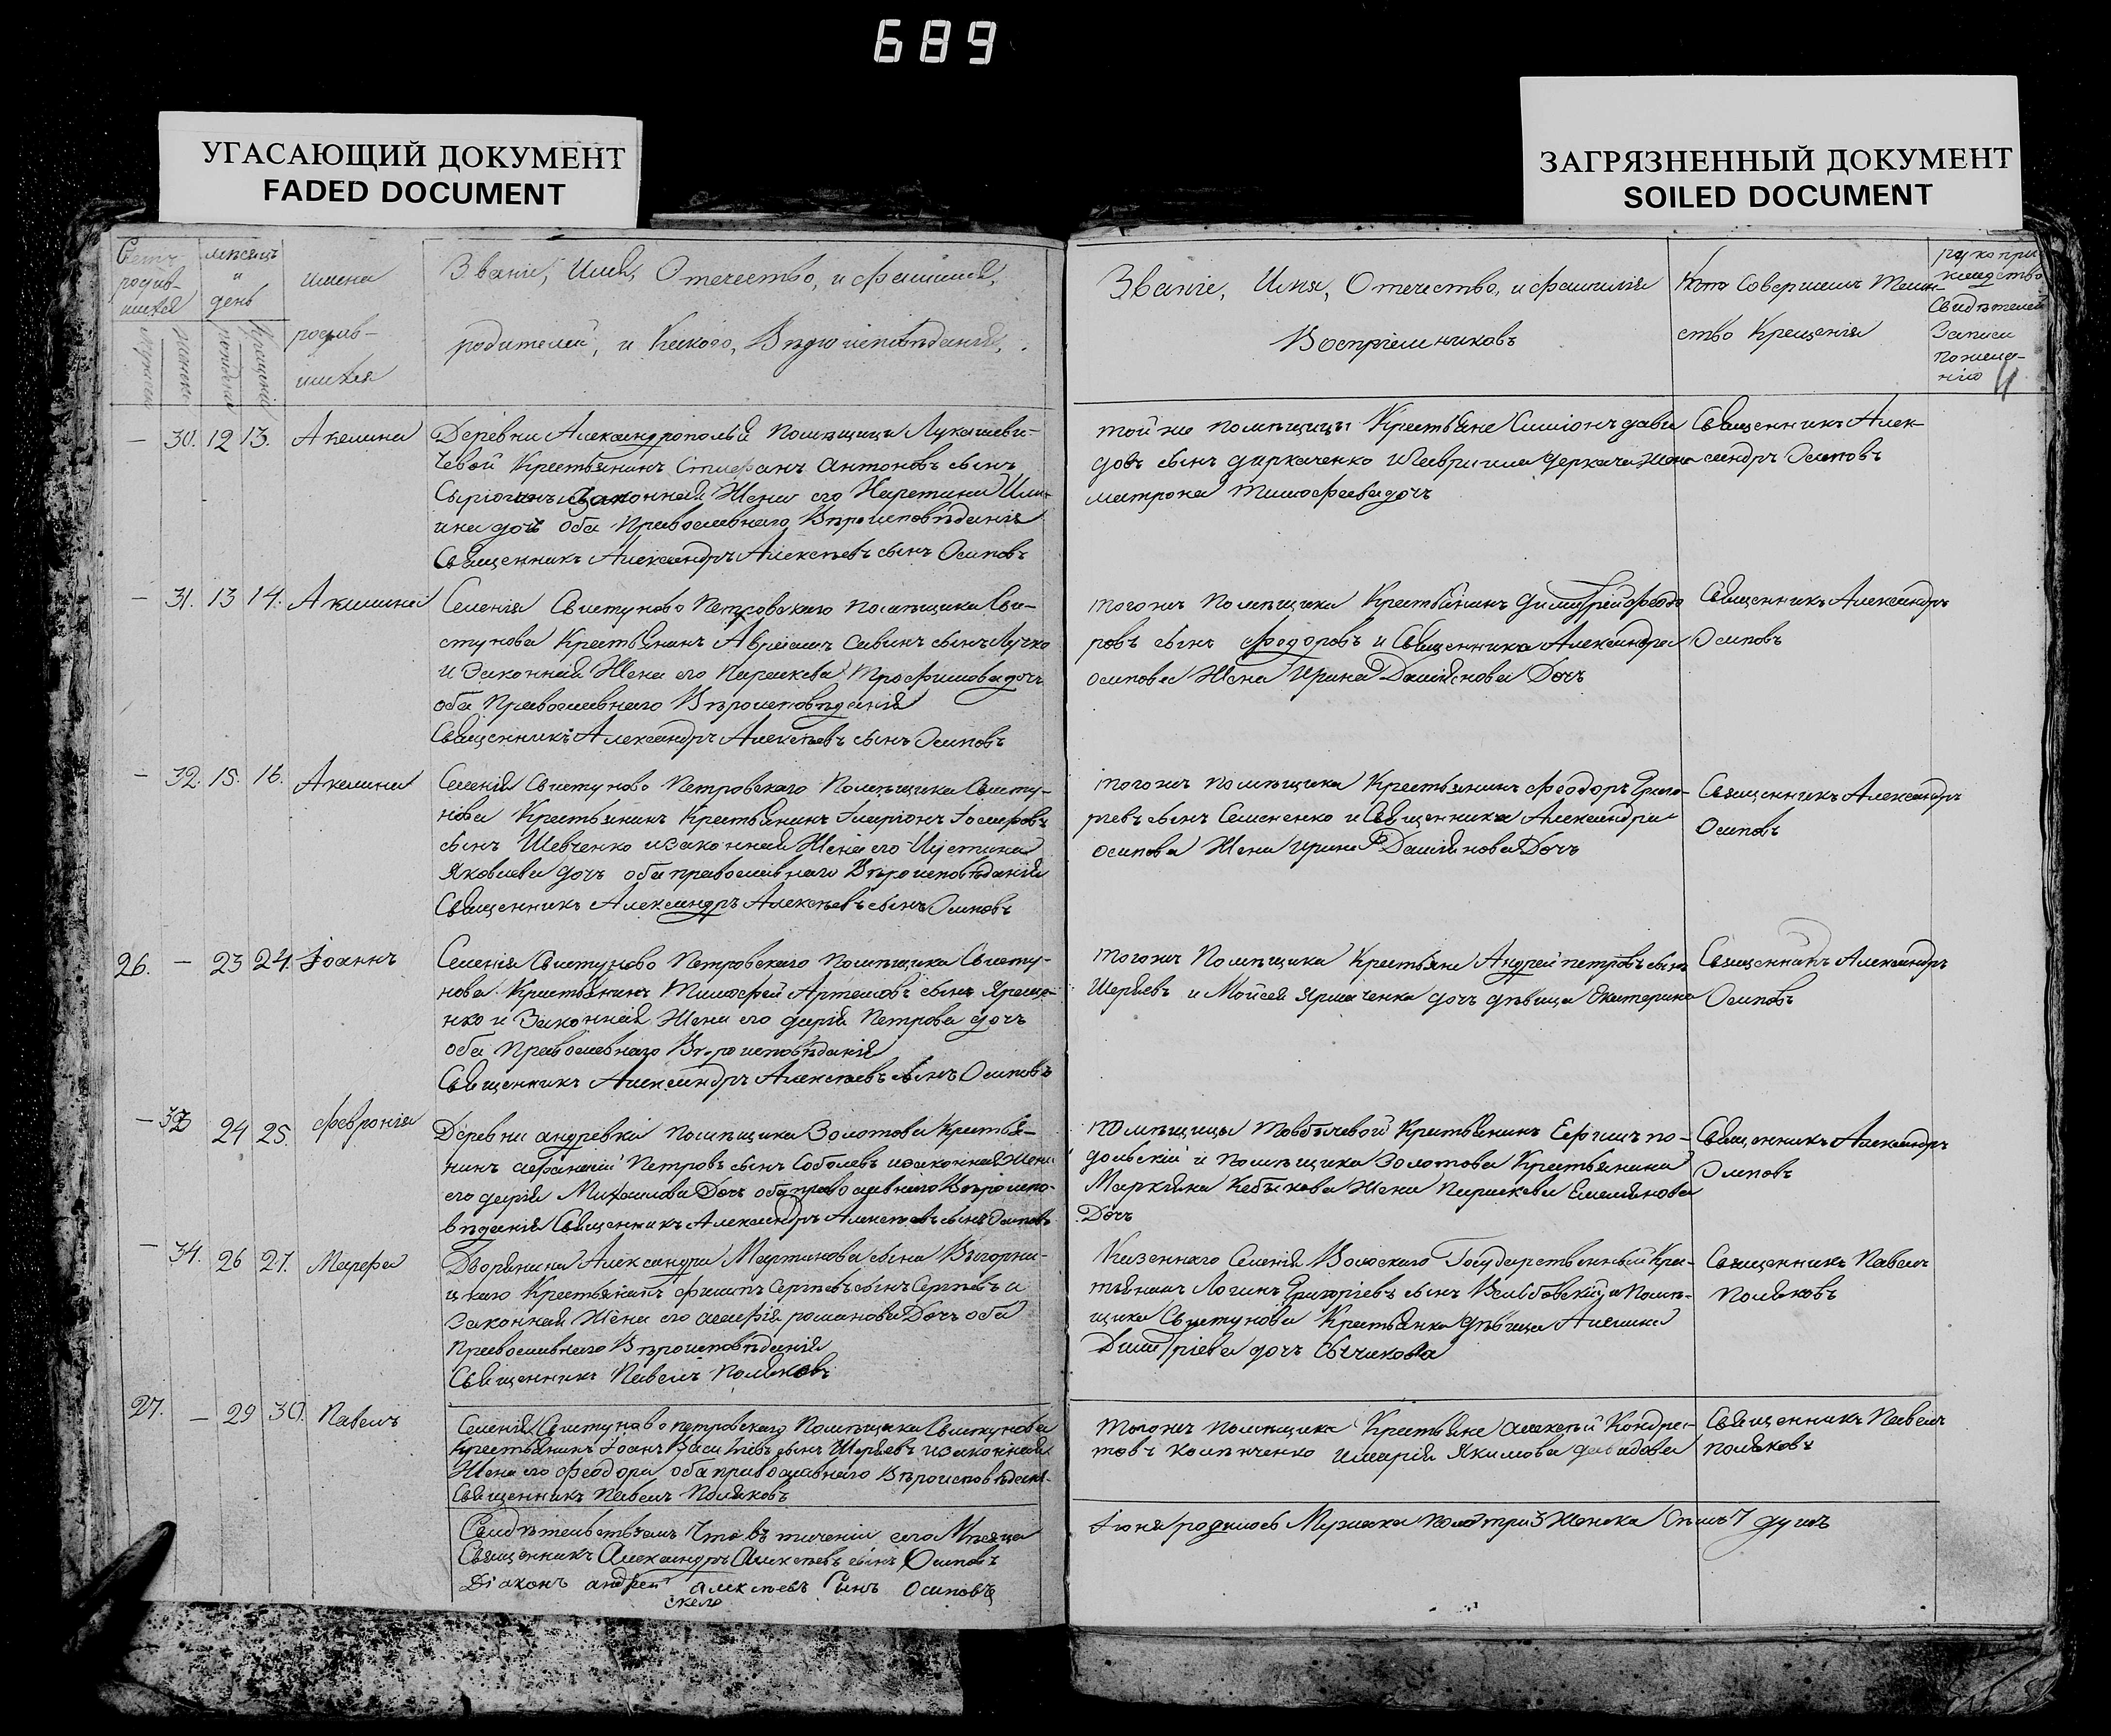 689
УГАСАЮЩИЙ ДОКУМЕНТ
FADED DOCUMENT
ЗАГРЯЗНЕННЫЙ ДОКУМЕНТ
SOILED DOCUMENT
Счетъ родив-шихся
мѣсяцъ и день
имена родив-шихся
Званіе, Имя, Отечество, и фамилія,
родителей, и Какого, Вѣроисповѣданія,
Званіе, Имя, Отечество, и фамилія
Воспріемниковъ
Кто Совершалъ Таин-
ство Крещенія
рукопри
кладство
Свидѣтелей
Записи
по жела-
нію
4
— 30. 12 13. Акелина
Деревни Александрополья Помѣщицы Лукашеви-
чевой Крестьянинъ Стефанъ Антоновъ сынъ
законная Жена его
дочь оба Православнаго Вѣроисповѣданія
Священникъ Александръ Алексѣевъ сынъ Осиповъ
той же помѣщицы Крестьяне Симіонъ дави
довъ сынъ диркаченко Жена
матрона Тимофеева дочь
Священникъ Алек-
сандръ Осиповъ
— 31. 13 14. Акилина
Селенія Свистуново Петровскаго помѣщика Сви-
стунова Крестьянинъ Аврамъ Савинъ сынъ Лучко
и Законная Жена его Параскева Трофимова дочь
оба Православнаго Вѣроисповѣданія
Священникъ Александръ Алексѣевъ сынъ Осиповъ
тогожъ Помѣщика Крестьянинъ Димитрій Феодо
ровъ сынъ Федоровъ и Священника Александра
осипова Жена Ирина Даміянова Дочь
Священникъ Александръ
Осиповъ
— 32. 15. 16. Акелина
Селенія Свистуново Петровскаго Помѣщика Свисту-
нова Крестьянинъ Крестьянинъ Іларіонъ
сынъ Шевченко и законная Жена его Иустина
Яковлева дочь оба православнаго Вѣроисповѣданія
Священникъ Александръ Алексѣевъ сынъ Осиповъ
тогожъ помѣщика Крестьянинъ Феодоръ Григо-
ріевъ сынъ Семененко и Священника Александра
осипова Жена Ирина Даміянова Дочь
Священникъ Александръ
Осиповъ
26. — 23 24. Іоаннъ
Селенія Свистуново Петровскаго помѣщика Свисту-
нова Крестьянинъ Тимофей Артемовъ сынъ Яреме-
нко и Законная Жена его дарія Петрова дочь
оба Православнаго Вѣроисповѣданія
Священникъ Александръ Алексѣевъ сынъ Осиповъ
тогожъ Помѣщика Крестьяне Андрей петровъ сынъ
Шеряевъ и Моисея дочь дѣвица Екатерина
Священникъ Александръ
Осиповъ
— 33 24 25. Февронія
Деревни андревки помѣщика Золотова Крестья-
нинъ афанасій Петровъ сынъ Соболевъ и законная Жена
его дарія Михаилова Дочь оба православнаго Вѣроиспо-
вѣданія Священникъ Александръ Алексѣевъ сынъ Осиповъ
помѣщицы Крестьянинъ Ефимъ по-
дольскій и помѣщика Золотова Крестьянина
Маркіяна Жена Параскева Емелянова
Дочь
Священникъ Александръ
Осиповъ
— 34. 26 27. Марфа
Дворянина Александра Мартинова сына Выгорни-
цкаго Крестьянинъ филипъ Сергѣевъ сынъ Сергѣевъ и
Законная Жена его романова Дочь оба
Православнаго Вѣроисповѣданія
Священникъ Павелъ Поляковъ
Казеннаго Селенія Волоскаго Государственный Кре-
стьянинъ Логинъ Григоріевъ сынъ и Помѣ-
щика Свистунова Крестьянка дѣвица Акелина
Димитріева дочь Сычикова
Священникъ Павелъ
Поляковъ
27. — 29 30. Павелъ
Селенія Свистуново петровскаго Помѣщика Свистунова
Крестьянинъ Іоанъ Василіевъ сынъ Шеряевъ и законная
Жена его Феодора оба православнаго Вѣроисповѣданія
Священникъ Павелъ Поляковъ
тогожъ помѣщика Крестьяне алексѣй Кондра-
товъ и марія Якимова давидова
Священникъ Павелъ
поляковъ
Свидѣтельствуемъ Что въ теченіи сего Мѣсяца
Священникъ Александръ Алексѣевъ сынъ Осиповъ
Діаконъ андрей алексѣевъ Синъ осиповъ
Іюня родилось Мужеска